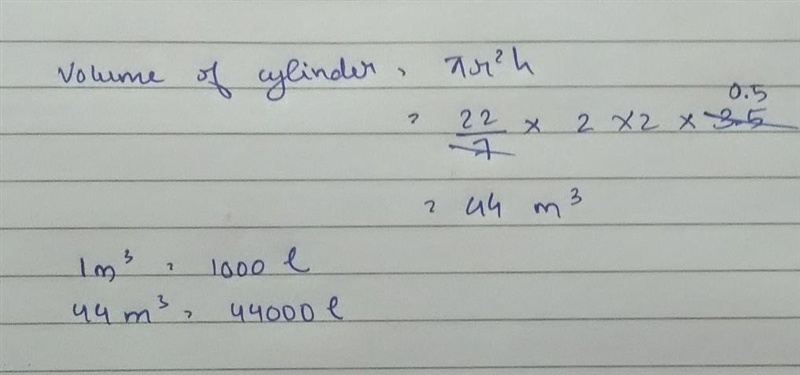 Volume of cylinder = πr²h
0.5
= 22/7 × 2 × 2 × 3.5
= 44 m³
1m³ = 1000 l
44m³ = 44000 l